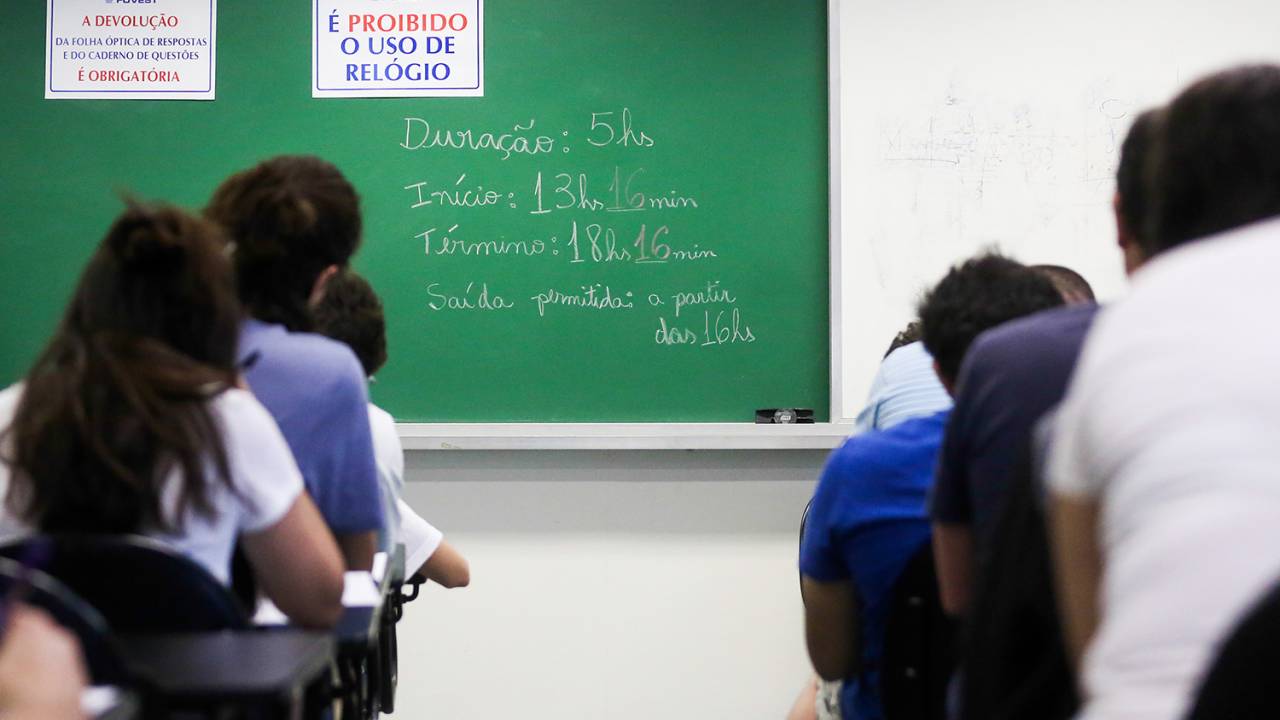 FUVEST
A DEVOLUÇÃO
DA FOLHA ÓPTICA DE RESPOSTAS
E DO CADERNO DE QUESTÕES
É OBRIGATÓRIA
É PROIBIDO
O USO DE
RELÓGIO
Duração: 5hs
Início: 13hs 16min
Término: 18hs 16min
Saída permitida: a partir
das 16hs